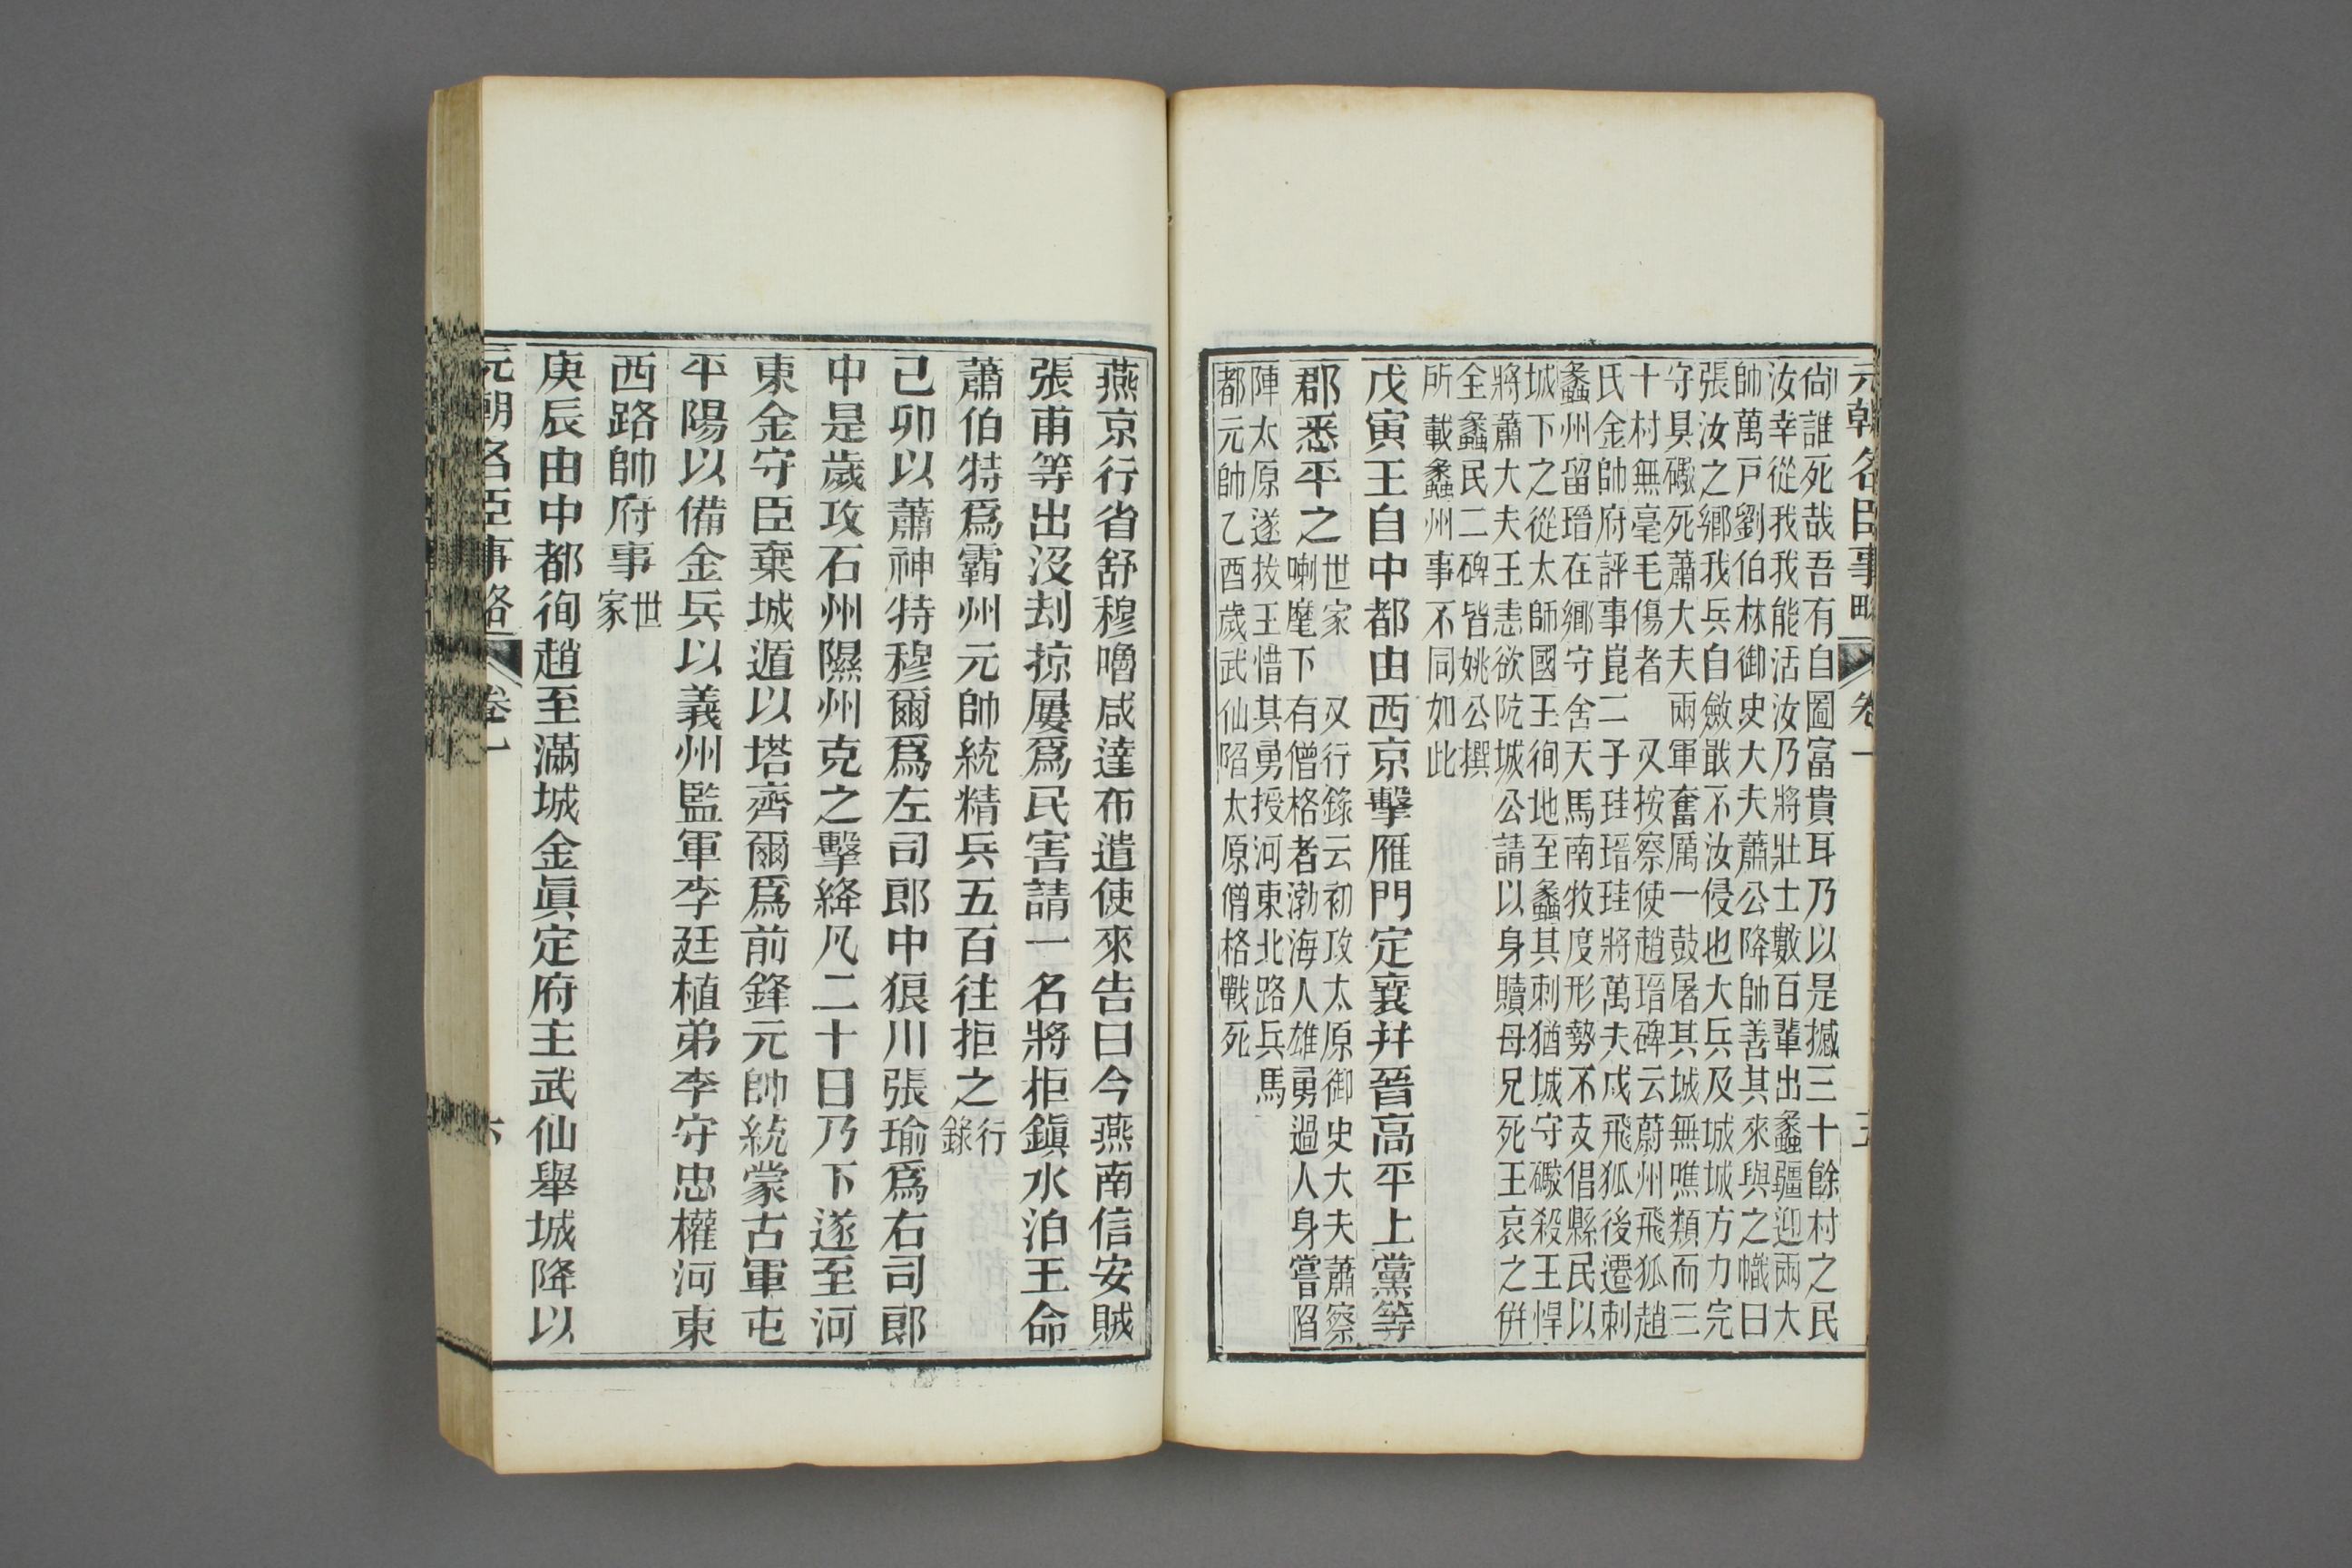 元朝名臣事略 卷一 五
尙誰死哉吾有自圖富貴耳乃以是撼三十餘村之民
汝幸從我我能活汝乃將壯士數百輩出蠡疆迎兩大
帥萬戸劉伯林御史大夫蕭公降帥善其來與之幟曰
張汝之鄉我兵自斂戢不汝侵也大兵及城城方力完
守具礮死蕭大夫兩軍奮厲一鼓屠其城無噍類而三
十村無毫毛傷者 又按察使趙瑨碑云蔚州飛狐趙
氏金帥府評事崑二子珪瑨珪將萬夫戍飛狐後遷刺
蠡州留瑨在鄉守舍天馬南牧度形勢不支倡縣民以
城下之從太師國王徇地至蠡其刺猶城守礮殺王悍
將蕭大夫王恚欲阬城公請以身贖母兄死王哀之併
全蠡民二碑皆姚公撰
所載蠡州事不同如此
戊寅王自中都由西京擊雁門定襄并晉高平上黨等
郡悉平之
世家 又行錄云初攻太原御史大夫蕭察
喇麾下有僧格者渤海人雄勇過人身嘗陷
陣太原遂拔王惜其勇授河東北路兵馬
都元帥乙酉歲武仙陷太原僧格戰死
燕京行省舒穆嚕咸達布遣使來告曰今燕南信安賊
張甫等出沒刦掠屢爲民害請一名將拒鎭水泊王命
蕭伯特爲霸州元帥統精兵五百往拒之行錄
己卯以蕭神特穆爾爲左司郎中狼川張瑜爲右司郎
中是歲攻石州隰州克之擊絳凡二十日乃下遂至河
東金守臣棄城遁以塔齊爾爲前鋒元帥統蒙古軍屯
平陽以備金兵以義州監軍李廷植弟李守忠權河東
西路帥府事世家
庚辰由中都徇趙至滿城金眞定府主武仙舉城降以
元朝名臣事略 卷一 六